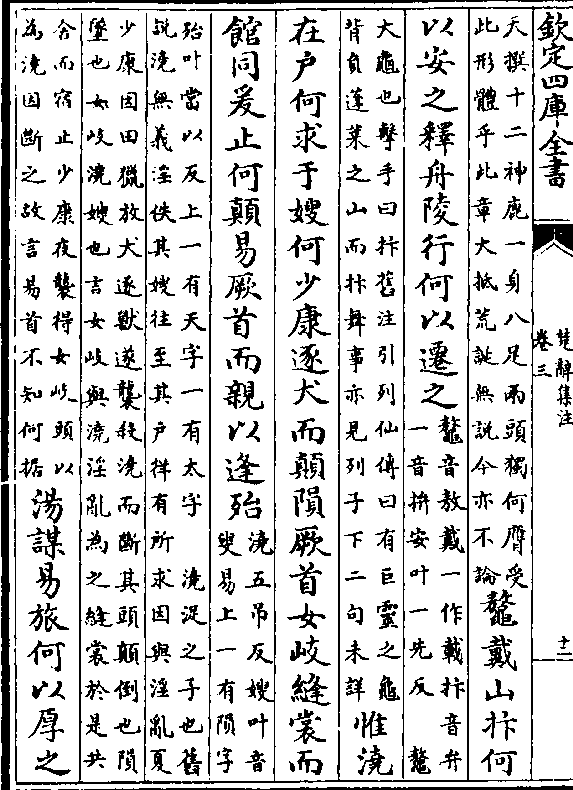 欽定四庫全書
楚辭集注
卷三
十二
天撰十二神鹿一身八足兩頭獨何膺受
此形體乎此章大抵荒誕無說今亦不論
鼇戴山抃何
以安之釋舟陵行何以遷之
鼇音敖戴一作載抃音弁
一音拚安叶一先反 鼇
大龜也擊手曰抃舊注引列仙傳曰有巨靈之龜
背負蓬萊之山而抃舞事亦見列子下二句未詳
惟澆
在户何求于嫂何少康逐犬而顛隕厥首女岐縫裳而
館同爰止何顛易厥首而親以逢殆
澆五吊反嫂叶音
叟易上一有隕字
殆叶當以反上一有天字一有太字 澆浞之子也舊
說澆無義淫佚其嫂往至其户佯有所求因與淫亂夏
少康因田獵放犬逐獸遂襲殺澆而斷其頭顛倒也隕
墜也女岐澆嫂也言女岐與澆淫亂為之縫裳於是共
舍而宿止少康夜襲得女岐頭以
為澆因斷之故言易首不知何据
湯謀易旅何以厚之